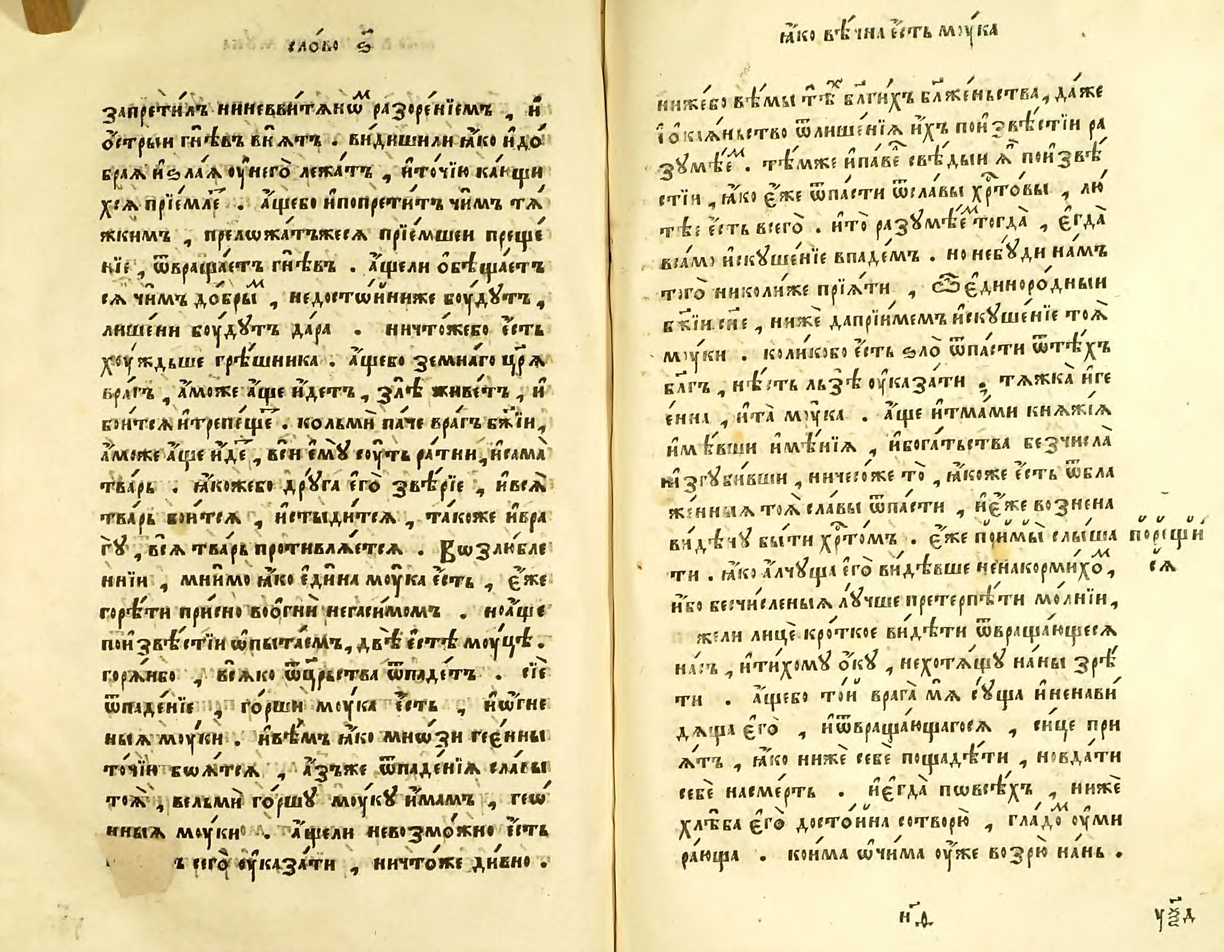 сло́во ѕ҃
запрети́лъ ниневви́тянѡⷨ разоре́нїемъ , и҆
ѻ҆́стрыи гнѣ́въ вн҄ѧтъ . ви́дишили ꙗ҆́ко и҆до́
браѧ и҆ѕла́ѧ ѹ҆него̀ лежа́тъ , и҆то́чїю ка́ющи
хсѧ прїе́мле . а҆́щебо и҆попрети́тъ чи́мъ тѧ́
жкимъ , предло́жа́тъжесѧ прїе́мшеи преще́
нїе , ѿвраща́етъ гнѣ́въ . а҆́щели ѻ҆бѣща́етъ
сѧ чи́мъ до́брыⷨ , недосто́йниже бꙋ́дꙋтъ ,
лише́ни бꙋ́дꙋтъ да́ра . ничто́жебо є҆́сть
хꙋ́ждьше грѣ́шника . а҆́щебо земна́го цр҃ѧ
вра́гъ , а҆́може а҆́ще и҆́детъ , злѣ̀ живе́тъ , и҆
бои́тсѧ и҆трепе́ще . кольмѝ па́че вра́гъ бж҃їи ,
а҆́може а҆́ще и҆́де , всѝ є҆мꙋ̀ сꙋ́ть ра́тни , и҆сама̀
тва́рь . ꙗ҆́кожебо дрꙋ́га є҆го̀ звѣ́рїе , и҆всѧ̀
тва́рь бои́тсѧ , и҆стыди́тсѧ , та́коже и҆вра
гꙋ̀ , всѧ̀ тва́рь противлѧ́етсѧ . Возлю́бле
ннїи , мни́мо ꙗ҆́ко є҆ди́на мꙋ́ка є҆́сть , є҆́же
горѣ́ти при́сно воѻ҆гнѝ негаси́момъ . ноа҆́ще
пои҆звѣ́стїи ѡ҆пыта́емъ , двѣ̀ є҆́стѣ мꙋ́цѣ .
горѧ́ибо , всѧ́ко ѿцр҃ьства ѿпаде́тъ . сїѐ
ѿпаде́нїе , го́рши мꙋ́ка є҆́сть , и҆ѻ҆́гне
ныѧ мꙋ́ки . и҆вѣ́мъ ꙗ҆́ко мно́зи гее́нны
то́чїю боѧ́тсѧ , а҆́зъже ѿпаде́нїѧ сла́вы
тоѧ̀ , вельмѝ го́ршꙋ мꙋ́кꙋ и҆́мамъ , гее́
нныѧ мꙋ́ки . а҆́щели невозмо́жно є҆́сть
сего̀ ѹ҆каза́ти , ничто́же ди́вно .
ꙗ҆́ко вѣ́чна є҆́сть мꙋ́ка
ниже́бо вѣ́мы тѣⷯ бл҃ги́хъ бл҃же́ньства , да́же
і҆ѻ҆каѧ́ньство ѿлише́нїѧ и҆́хъ пои҆звѣ́стїи ра
зꙋмѣ́еⷨ . тѣ́мже и҆па́ве свѣ́дыи ѧ҆̀ пои҆звѣ́
стїи , ꙗ҆́ко є҆́же ѿпа́сти ѿсла́вы хрⷭ҇то́вы , лю
тѣ́е є҆́сть всего̀ . и҆то̀ разꙋмѣ́еⷨ тогда̀ , є҆гда̀
вса́мо и҆скꙋше́нїе впаде́мъ . но небꙋ́ди на́мъ
того̀ николи́же прїѧ́ти , Ѽ є҆диноро́дныи
бж҃їи сн҃е , нижѐ даприи́мемъ и҆скꙋше́нїе тоѧ̀
мꙋ́ки . коли́кобо є҆́сть ѕло̀ ѿпа́сти ѿтѣ́хъ
бл҃гъ , нѣ́сть льзѣ̀ ѹ҆каза́ти . тѧ́жка̀ и҆ге
е́нна , и҆та̀ мꙋ́ка . а҆́ще и҆тма́ми кнѧ́жїѧ
и҆мѣ́вши и҆мѣ́нїѧ , и҆бога́тьства безчисла̀
и҆згꙋби́вши , ничесо́же то̀ , ꙗ҆́коже є҆́сть ѿбла
же́нныѧ тоѧ̀ сла́вы ѿпа́сти , и҆є҆́же вознена
ви́дѣнꙋ бы́ти хрⷭ҇то́мъ . є҆́же пои҆мы̀ слы́ша
ти . ꙗ҆́ко а҆́лчꙋща є҆го̀ ви́дѣвше ненакорми́хоⷨ ,
и҆́бо бесчи́сленыѧ лꙋ́чше претерпѣ́ти мо́лнїи ,
жели лицѐ кро́ткое ви́дѣти ѿвраща́ющеесѧ
на́съ , и҆ти́хомꙋ ѻ҆́кꙋ , нехотѧ́щꙋ на́ны зрѣ́
ти . а҆́щебо то́й врага̀ мѧ̀ сꙋ́ща и҆ненави́
дѧща є҆го̀ , и҆ѿвраща́ющагосѧ , си́це при
ѧ́тъ , ꙗ҆́ко нижѐ себѐ пощадѣ́ти , новда́ти
себѐ насме́рть . и҆є҆гда̀ повсѣ́хъ , нижѐ
хлѣ́ба є҆го̀ досто́йна сотворю̀ , гла́доⷨ ѹ҆ми
ра́юща . ко́има ѻ҆чи́ма ѹ҆́же возрю̀ на́нь .